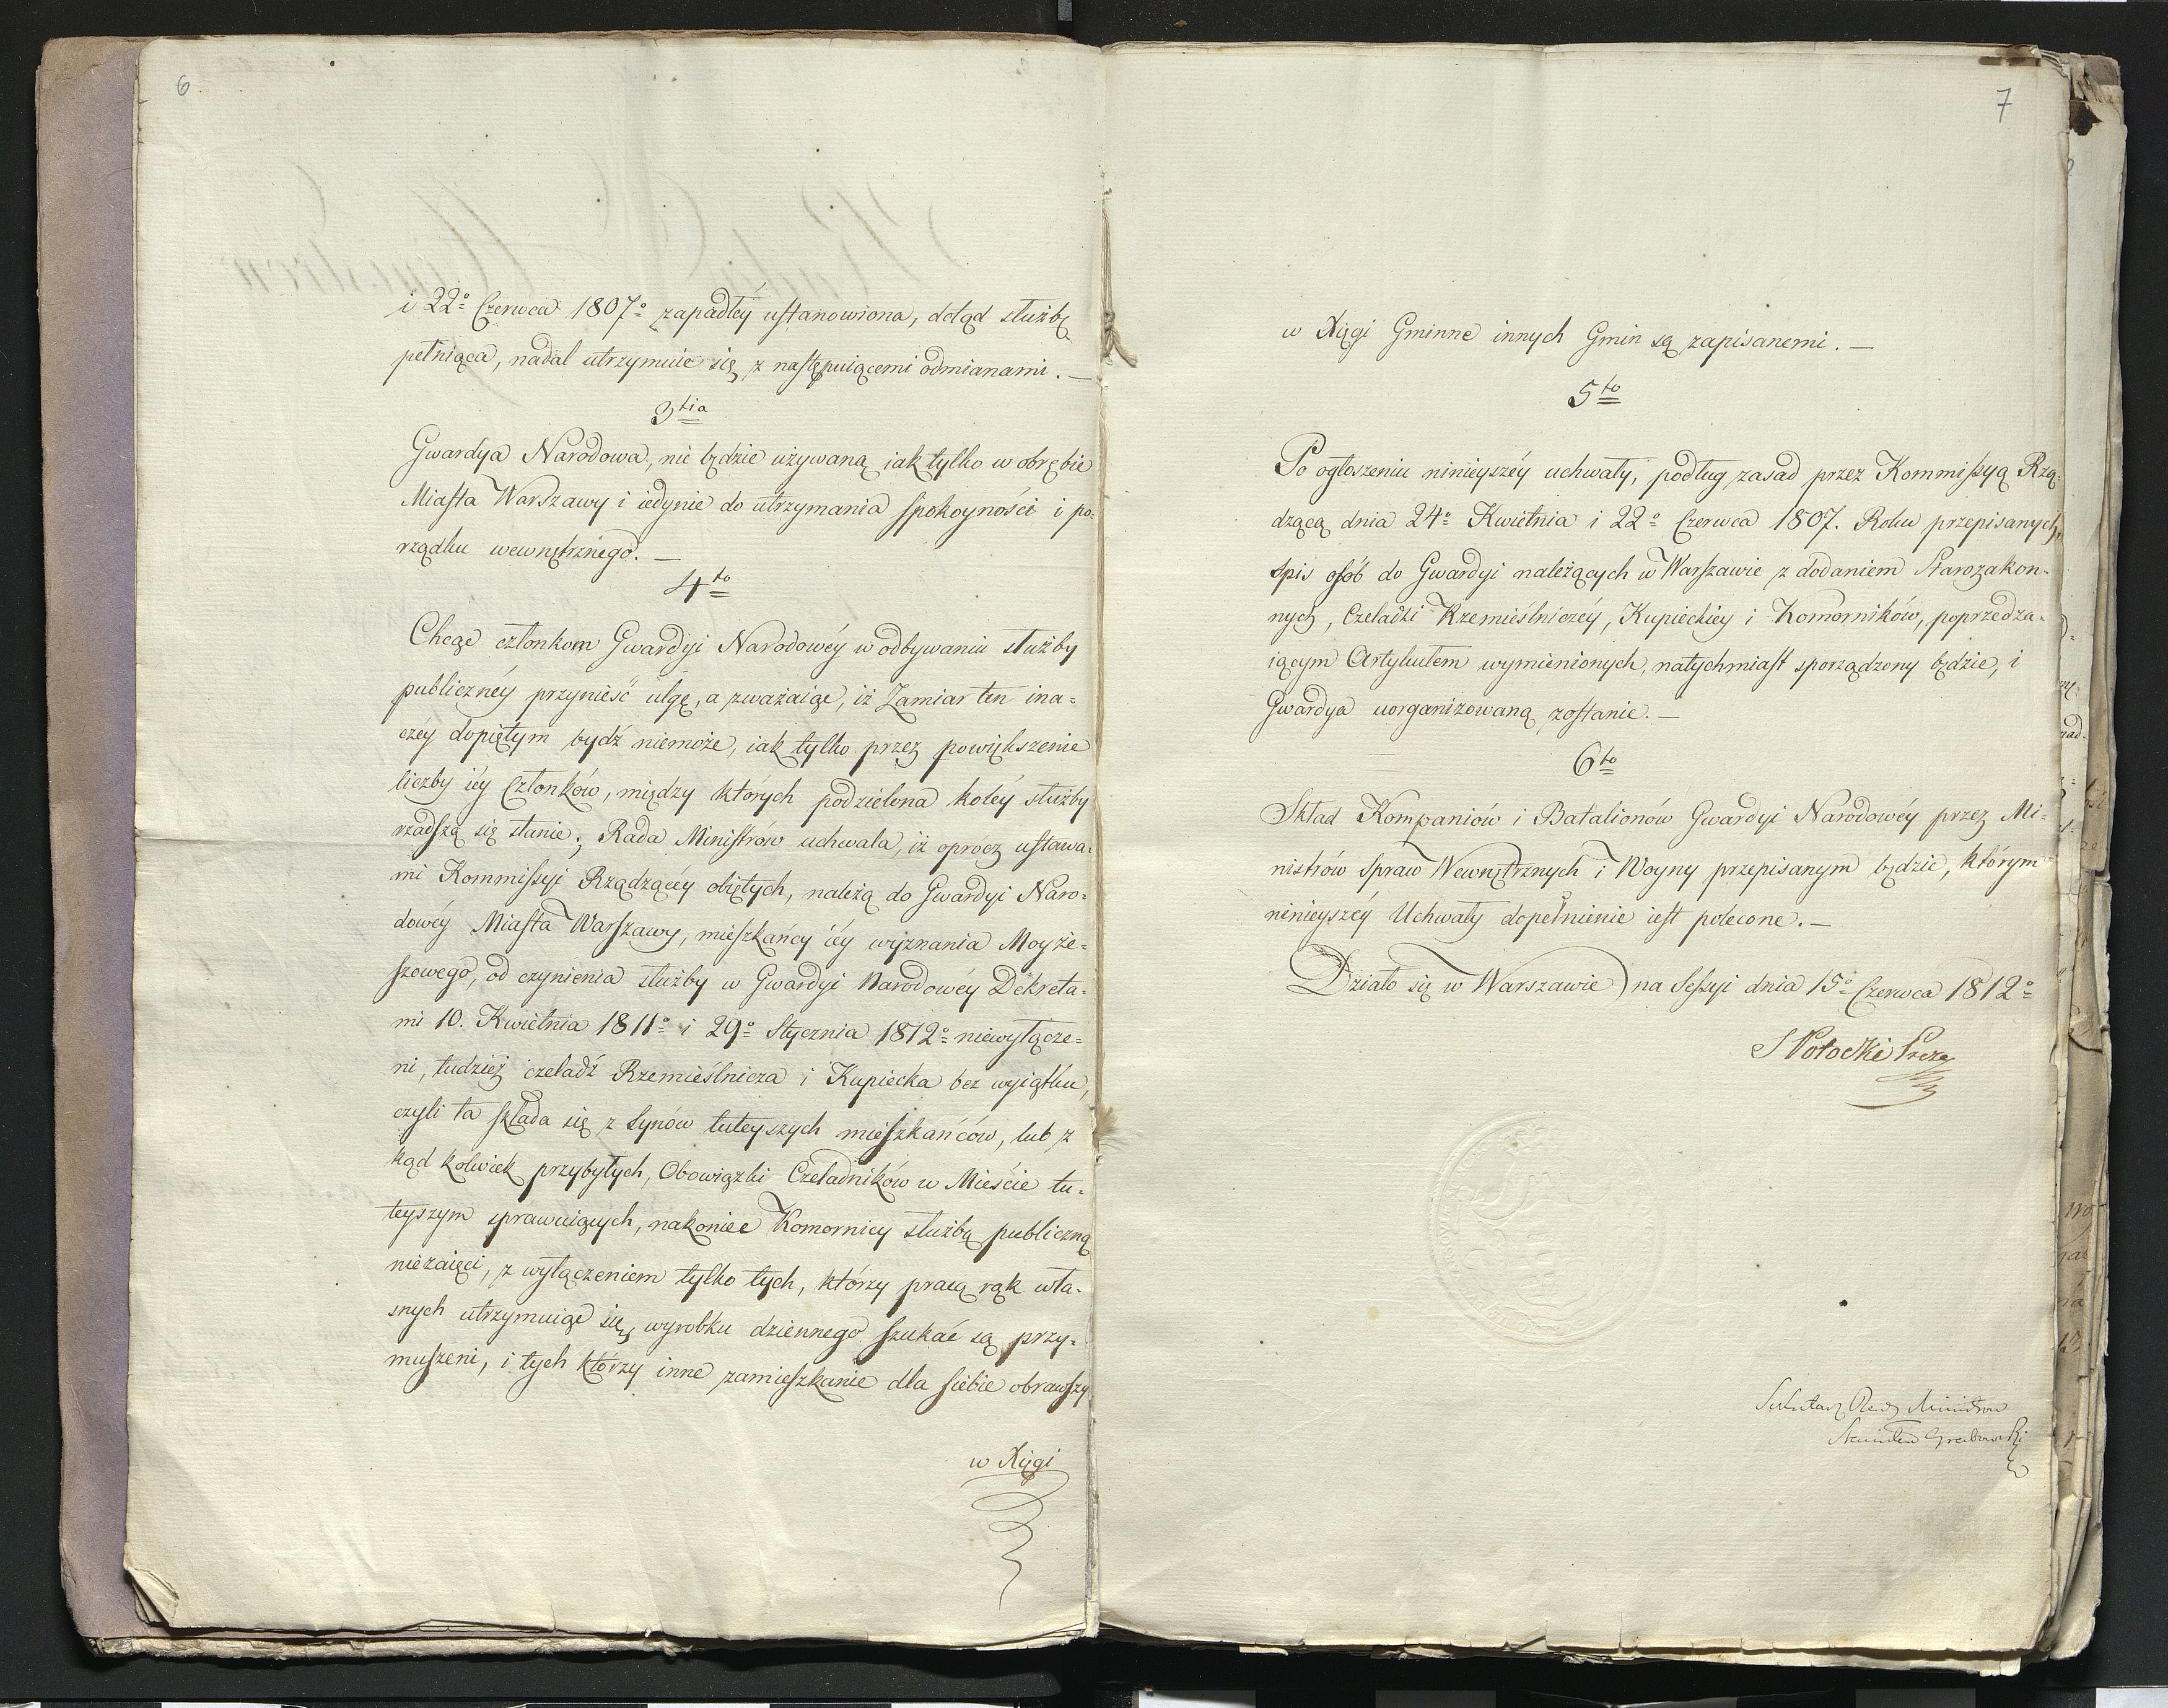 6
i 22º Czerwca 1807º zapadłéy ustanowiona, dotąd służbę
pełniąca, nadal utrzymuie się z następuiącemi odmianami. —
3tia
Gwardya Narodowa, nie będzie używaną iak tylko w obrębie
Miasta Warszawy i iedynie do utrzymania spokoyności i po-
rządku wewnętrznego. —
4to
Chcąc członkom Gwardyi Narodowéy w odbywaniu służby
publicznéy przynieść ulgę, a zważaiąc, iż Zamiar ten ina-
czéy dopiętym bydź niemoże, iak tylko przez powiększenie
liczby iéy Członków, między których podzielona koléy służby
rzadszą się stanie; Rada Ministrów uchwala, iż oprócz ustawa-
mi Kommissyi Rządzącéy obiętych, należą do Gwardyi Naro-
dowéy Miasta Warszawy, mieszkańcy iéy wyznania Moyże-
szowego, od czynienia służby w Gwardyi Narodowéy Dekreta-
mi 10. Kwietnia 1811º i 29º Stycznia 1812º niewyłącze-
ni, tudzież czeladź Rzemieślnicza i Kupiecka bez wyiątku,
czyli ta składa się z Synów tuteyszych mieszkańców, lub z
kąd kolwiek przybyłych, Obowiązki Czeladników w Mieście tu-
teyszym sprawuiących, nakoniec Komornicy służbą publiczną
niezaięci, z wyłączeniem tylko tych, którzy pracą rąk wła-
snych utrzymuiąc się, wyrobku dziennego szukać są przy-
muszeni, i tych którzy inne zamieszkanie dla siebie obrawszy
w Xięgi
7
w Xięgi Gminne innych Gmin są zapisanemi. —
5to
Po ogłoszeniu ninieyszéy uchwały, podług zasad przez Kommissyą Rzą-
dzącą dnia 24º Kwietnia i 22º Czerwca 1807. Roku przepisanych,
spis osób do Gwardyi należących w Warszawie z dodaniem Starozakon-
nych, Czeladzi Rzemieślniczéy, Kupieckiéy i Komorników, poprzedza-
iącym Artykułem wymienionych, natychmiast sporządzony będzie, i
Gwardya uorganizowaną zostanie. —
6to
Skład Kompaniów i Batalionów Gwardyi Narodowéy przez Mi-
nistrów Spraw Wewnętrznych i Woyny przepisanym będzie, którym
ninieyszéy Uchwały dopełnienie iest polecone. —
Działo się w Warszawie na Sessyi dnia 15º Czerwca 1812º
S Potocki Prezes
Sekretarz Rady Ministrów
Stanisław Grabowski